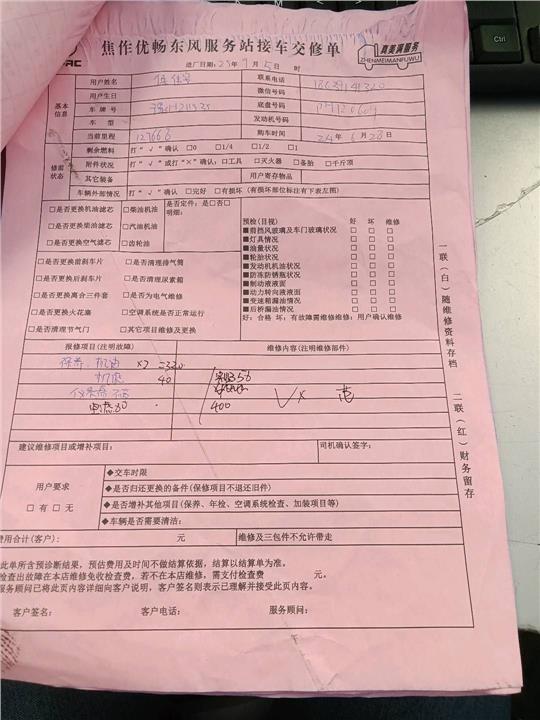 Ctrl
焦作优畅东风服务站接车交修单
真美满服务
ZHENMEIMANFUWU
进厂日期: 25年7月5日 时
基本信息
用户姓名 联系电话
用户生日 微信号码
车牌号 底盘号码
车型 发动机号码
当前里程 127668 购车时间 24年6月28日
修前状态
剩余燃料 打"√"确认 □0 □1/4 □1/2 □1
附件状况 打"√"或打"×"确认:□工具 □灭火器 □备胎 □千斤顶
其它装备 用户寄存物品
车辆外部情况 打"√"确认 □完好 □有损坏(有损坏部位标注有下表左图)
□是否更换机油滤芯 □柴油机油 是否定件:是□否□
明细:
□是否更换柴油滤芯 □汽油机油
□是否更换空气滤芯 □齿轮油
□是否更换前刹车片 □是否清理排气筒
□是否更换后刹车片 □是否清理尿素箱
□是否更换离合三件套 □是否为电气维修
□是否更换火花塞 □空调系统是否正常运行
□是否清理节气门 □其它项目维修及更换
预检(目视) 好 坏 维修
■前挡风玻璃及车门玻璃状况 □ □ □
■灯具情况 □ □ □
■油量状况 □ □ □
■轮胎状况 □ □ □
■发动机机油状况 □ □ □
■防冻防锈瓶状况 □ □ □
■制动液液面 □ □ □
■动力转向液液面 □ □ □
■变速箱漏油情况 □ □ □
■后桥漏油情况 □ □ □
好:合格 坏:有故障需维修维修:用户确认维修
报修项目(注明故障) 维修内容(注明维修部件)
保养 机油 ×7 =320
机滤 40
400
建议维修项目或增补项目: 司机确认签字:
用户要求
□有 □无
◆交车时限
◆是否归还更换的备件(保修项目不退还旧件)
◆是否增补其他项目(保养、年检、空调系统检查、加装项目等)
◆车辆是否需要清洁:
费用合计(客户): 元 维修及三包件不允许带走
此单所含预诊断结果,预估费用及时间不做结算依据,结算以结算单为准。
检查出故障在本店维修免收检查费,若不在本店维修,需支付检查费 元。
服务顾问已将此页内容详细向客户说明,客户签名则表示已理解并接受此页内容。
客户签名: 客户电话: 服务顾问:
一联(白)随维修资料存档
二联(红)财务留存